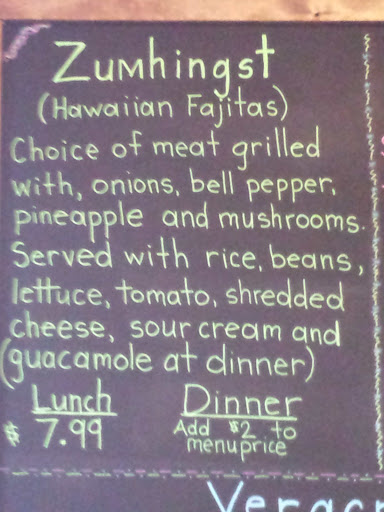 Zumhingst
(Hawaiian Fajitas)
Choice of meat grilled
with, onions, bell pepper,
pineapple and mushrooms.
Served with rice, beans,
lettuce, tomato, shredded
cheese, sour cream and
(guacamole at dinner)
Lunch Dinner
$ 7.99 Add $2 to
menu price